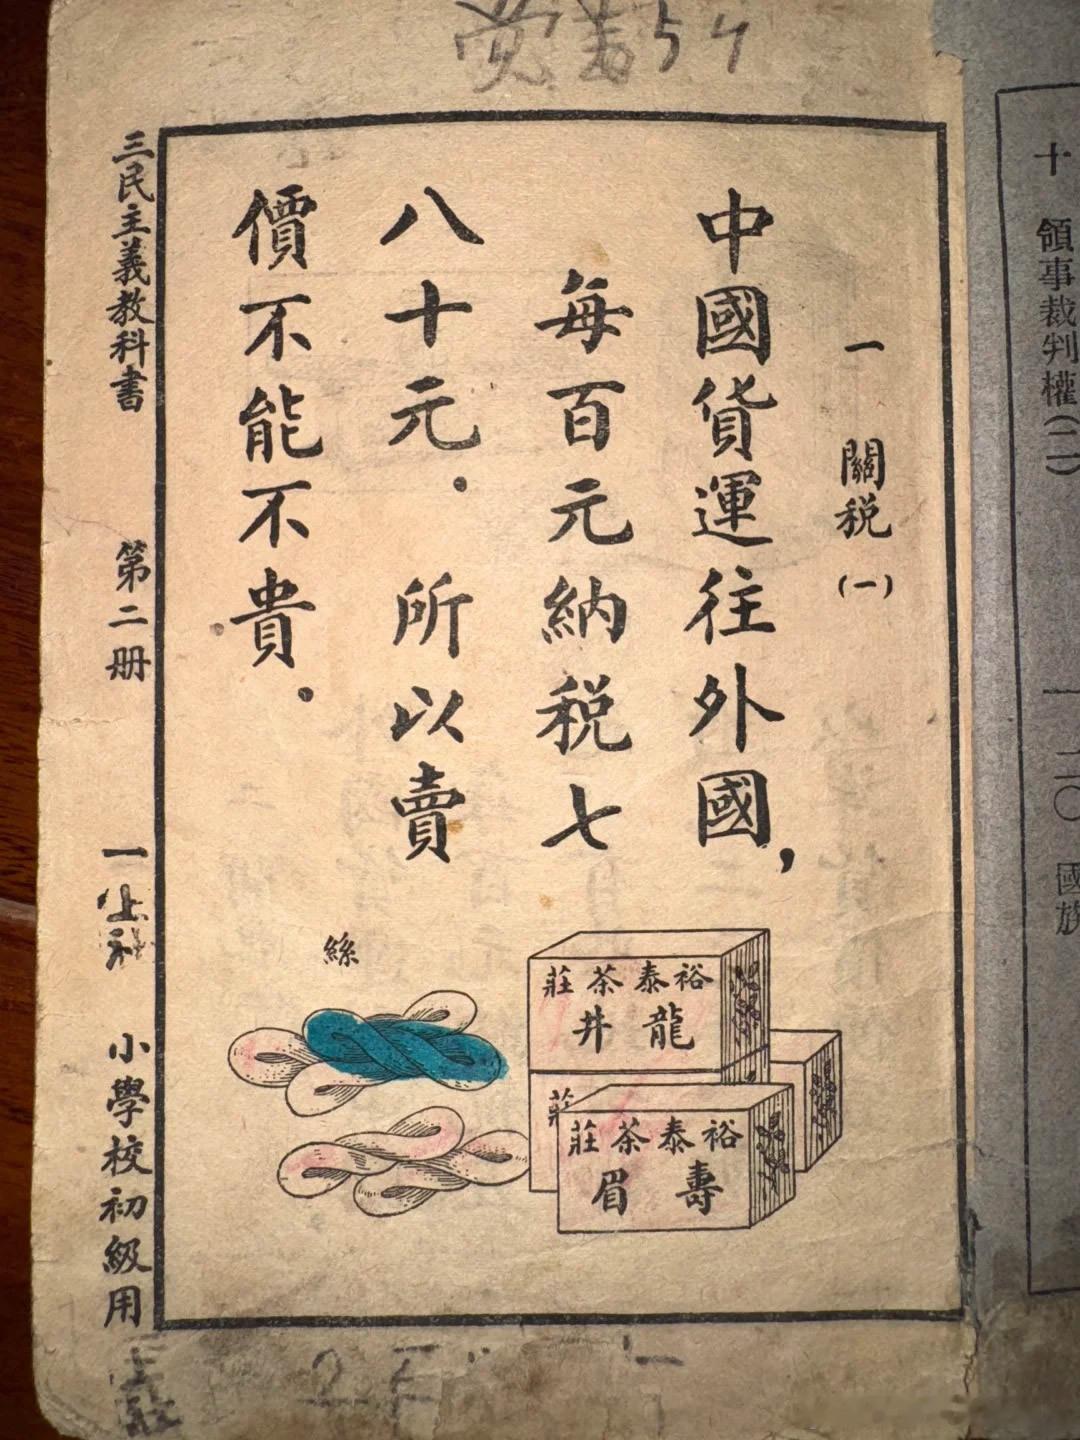 一 關税(一)
中國貨運往外國，
每百元納税七
八十元．所以賣
價不能不貴．
絲
裕泰茶莊
龍井
莊
裕泰茶莊
壽眉
三民主義教科書 第二册 一 小學校初級用
十 領事裁判權(二)
一一二〇 國族
54